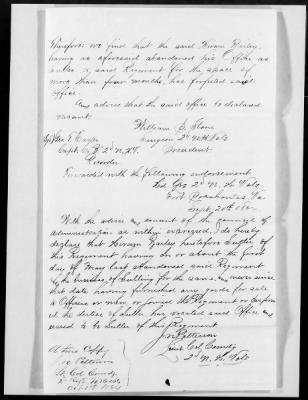 Therefore we find that the said Hiram Burley,
having as aforesaid abandoned his Office as
Sutler of said Regiment for the space of
more than four months, has forfeited said
office
And advise that the said office be declared
vacant.
William S. Stone
Surgeon 2d N.H. Vols
President
Capt. Co. 2d N.H.V.
Recorder
Forwarded with the following endorsement
Hd Qrs 2d N. H. Vols.
Fort Pocahontas, Va.
Sept. 20th
With the advice and consent of the council of
Administration as within expressed, I do hereby
declare that Hiram Burley heretofore Sutler of
this Regiment having on or about the first
day of May last abandoned said Regiment
the business of Sutling for the same, never since
that date having furnished any goods for sale
to Officers or men, or joined the Regiment or performed
the duties of Sutler has vacated said Office and
ceased to be Sutler of this Regiment
J. N. Patterson
Lieut. Col. Comdg
2d N. H. Vols
A true Copy
J. N. Patterson
Lt Col. Comdg